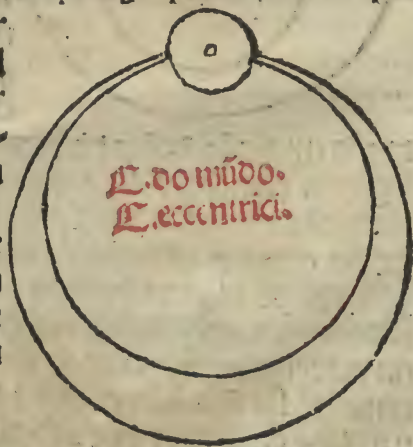 o
C.do mũdo.
C.eccentrici.